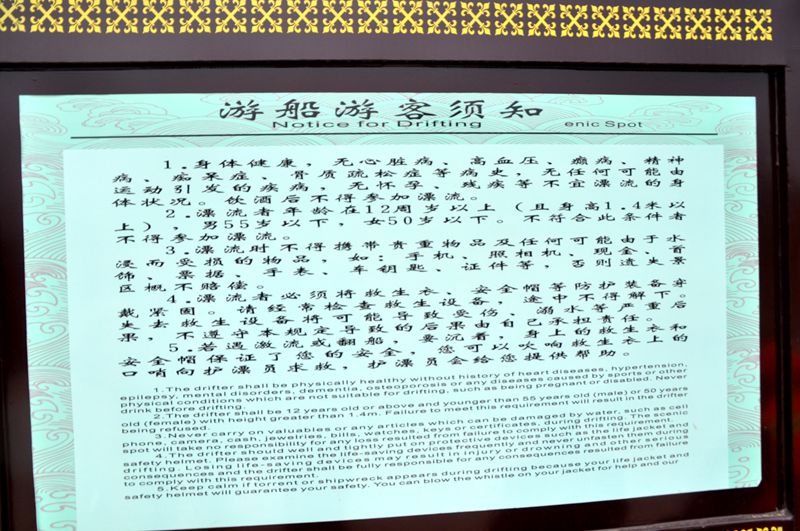 游船游客须知
Notice for Drifting enic Spot
1.身体健康，无心脏病、高血压、癫病、精神
病、痴呆症、骨质疏松症等病史，无任何可能由
运动引发的疾病，无怀孕、残疾等不宜漂流的身
体状况。饮酒后不得参加漂流。
2.漂流者年龄在12周岁以上（且身高1.4米以
上），男55岁以下，女50岁以下。不符合此条件者
不得参加漂流。
3.漂流时不得携带贵重物品及任何可能由于水
浸而受损的物品，如：手机、照相机、现金、首
饰、票据、手表、车钥匙、证件等，否则遗失景
区概不赔偿。
4.漂流者必须将救生衣、安全帽等防护装备穿
戴紧固。请经常检查救生设备，途中不得解下。
失去救生设备将可能导致受伤、溺水等严重后
果，不遵守本规定导致的后果由自己承担责任。
5.若遇激流或翻船，要沉着，身上的救生衣和
安全帽保证了您的安全，您可以吹响救生衣上的
口哨向护漂员求救，护漂员会给您提供帮助。
1.The drifter shall be physically healthy without history of heart diseases, hypertension,
epilepsy, mental disorders, dementia, osteoporosis or any diseases caused by sports or other
physical conditions which are not suitable for drifting, such as being pregnant or disabled. Never
drink before drifting.
2.The drifter shall be 12 years old or above and younger than 55 years old (male) or 50 years
old (female) with height greater than 1.4m. Failure to meet this requirement will result in the drifter
being refused.
3.Never carry on valuables or any articles which can be damaged by water, such as cell
phone, camera, cash, jewelries, bills, watches, keys or certificates, during drifting. The scenic
spot will take no responsibility for any loss resulted from failure to comply with this requirement.
4.The drifter should well and tightly put on protective devices such as life jacket and
safety helmet. Please examine the life-saving devices frequently and never unfasten them during
drifting. Losing life-saving devices may result in injury or drowning and other serious
consequences and the drifter shall be fully responsible for any consequences resulted from failure
to comply with this requirement.
5.Keep calm if torrent or shipwreck appears during drifting because your life jacket and
safety helmet will guarantee your safety. You can blow the whistle on your jacket for help and our